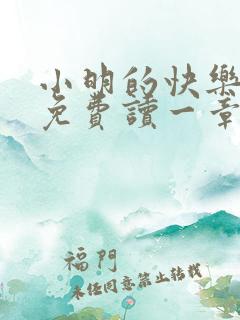 小明的快樂
免費讀一章
福門
未任同意禁止转载